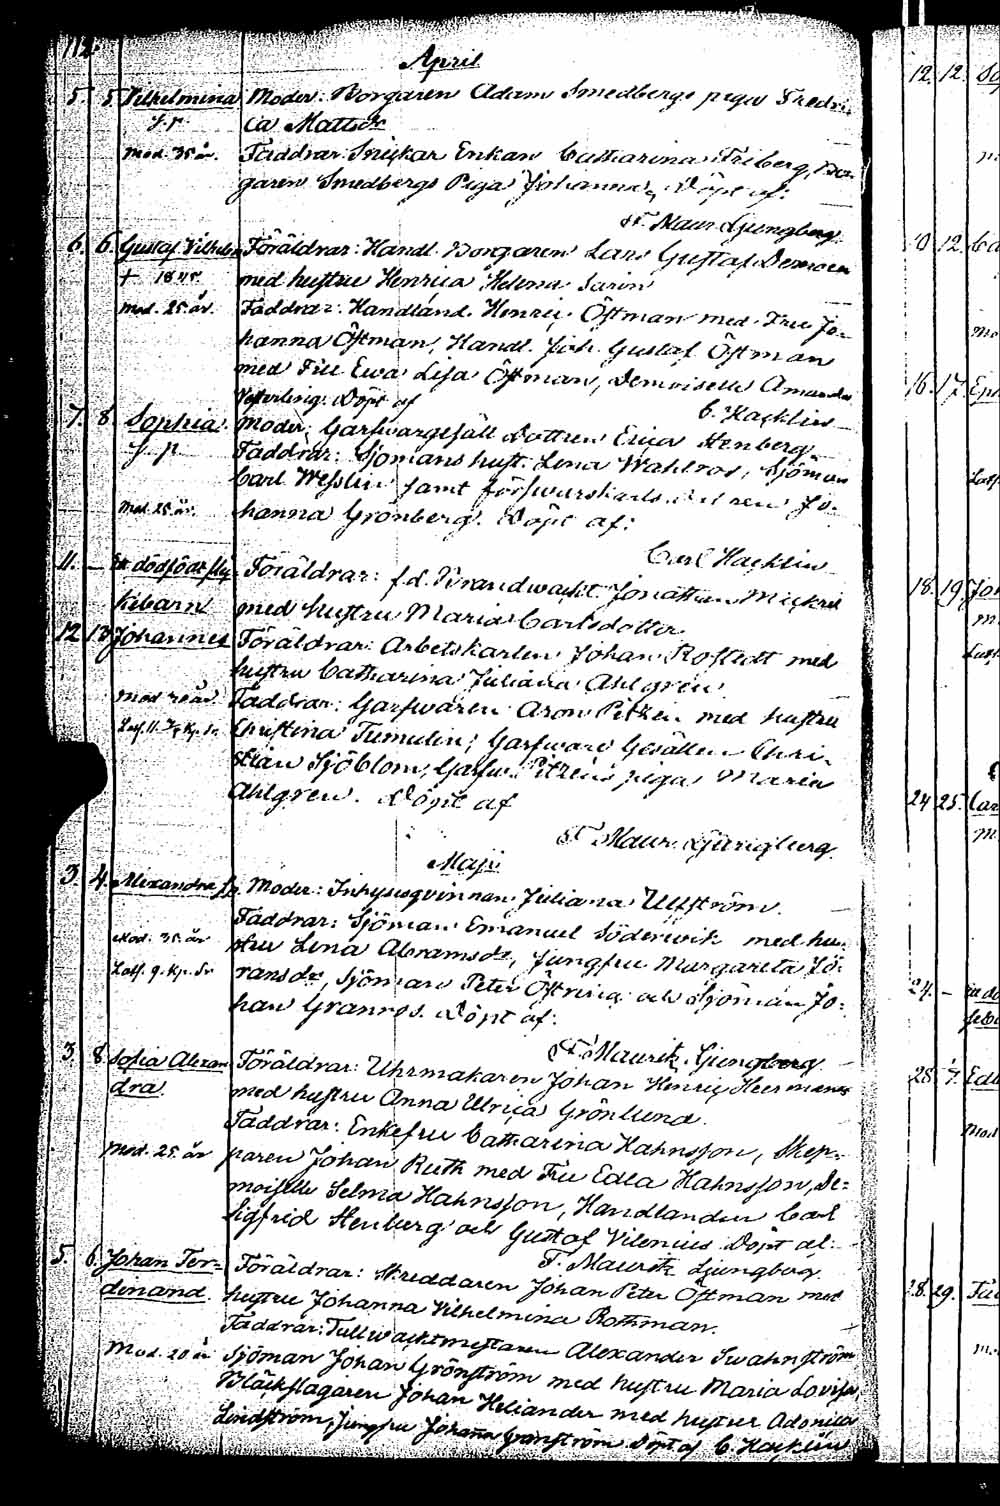 112.
April
5. 5. Vilhelmina Moder: Borgaren Adam Smedbergs piga Fredri-
ca Mattsdr
Mod. 35 år. Faddrar: Snickar Enkan Catharina Friberg, Bor-
garen Smedbergs Piga Johanna, Döpt af:
F. Maur. Ljungberg.
6. 6. Gustaf Vilhelm Föräldrar: Handl. Borgaren Lars Gustaf
+ 1848. med hustru Henrica Helena Sarin
Mod. 25 år. Faddrar: Handland. Henric Östman med Fru Jo-
hanna Östman, Handl. Joh. Gustaf Östman
med Fru Ewa Lisa Östman, Demoiselle Amanda
Vesterling. Döpt af
C. Hacklin
7. 8. Sophia. Moder: Garfwaregesäll Dottren Erica Stenberg
Faddrar: Sjömans hust. Lena Wahlros, Sjöman
Carl Wesslin samt förswarskarls dottren Jo-
Mod. 25 år. hanna Grönberg. Döpt af:
Carl Hacklin
11. — Ett dödfödt flic- Föräldrar: f.d. Brandwacht. Jonathan
kebarn med hustru Maria Carlsdotter
12. 13. Johannes Föräldrar: Arbetskarlen Johan Rostedt med
hustru Catharina Juliana Ahlgren
Faddrar: Garfwaren Aron Pitzén med hustru
Christina Tumulin; Garfware Gesällen Chri-
stian Sjöblom, Garfw. Pitzéns piga Maria
Ahlgren. Döpt af
F. Maur. Ljungberg.
Maji
3. 4. Alexandra Moder: Inhysesqvinnan Juliana Ullström.
Faddrar: Sjöman Emanuel Söderwik med hu-
Mod. 35 år stru Lena Abramsdr, Jungfru Margareta Jö-
ransdr, Sjöman Peter Östring och Sjöman Jo-
han Granros. Döpt af:
F. Mauritz Ljungberg
3. 8. Sofia Alexan- Föräldrar: Uhrmakaren Johan Henric Heermans
dra. med hustru Anna Ulrica Grönlund.
Faddrar: Enkefru Catharina Hahnsson, Skep-
Mod. 25 år paren Johan Ruth med Fru Edla Hahnsson, De-
moiselle Selma Hahnsson, Handlanden Carl
Sigfrid Stenberg och Gustaf Vilenius Döpt af:
F. Mauritz Ljungberg.
5. 6. Johan Fer- Föräldrar: Skreddaren Johan Peter Östman med
dinand. hustru Johanna Vilhelmina Rothman.
Faddrar: Tullwachtmestaren Alexander Swahnström
Mod. 20 år Sjöman Johan Grönström med hustru Maria Lovisa,
Bläckslagaren Johan Heliander med hustru
Lindström, Jungfru Johanna Grönström. Döpt af C. Hacklin
12. 12.
10 12.
16. 17.
18. 19.
24 25.
24. —
28. 29.